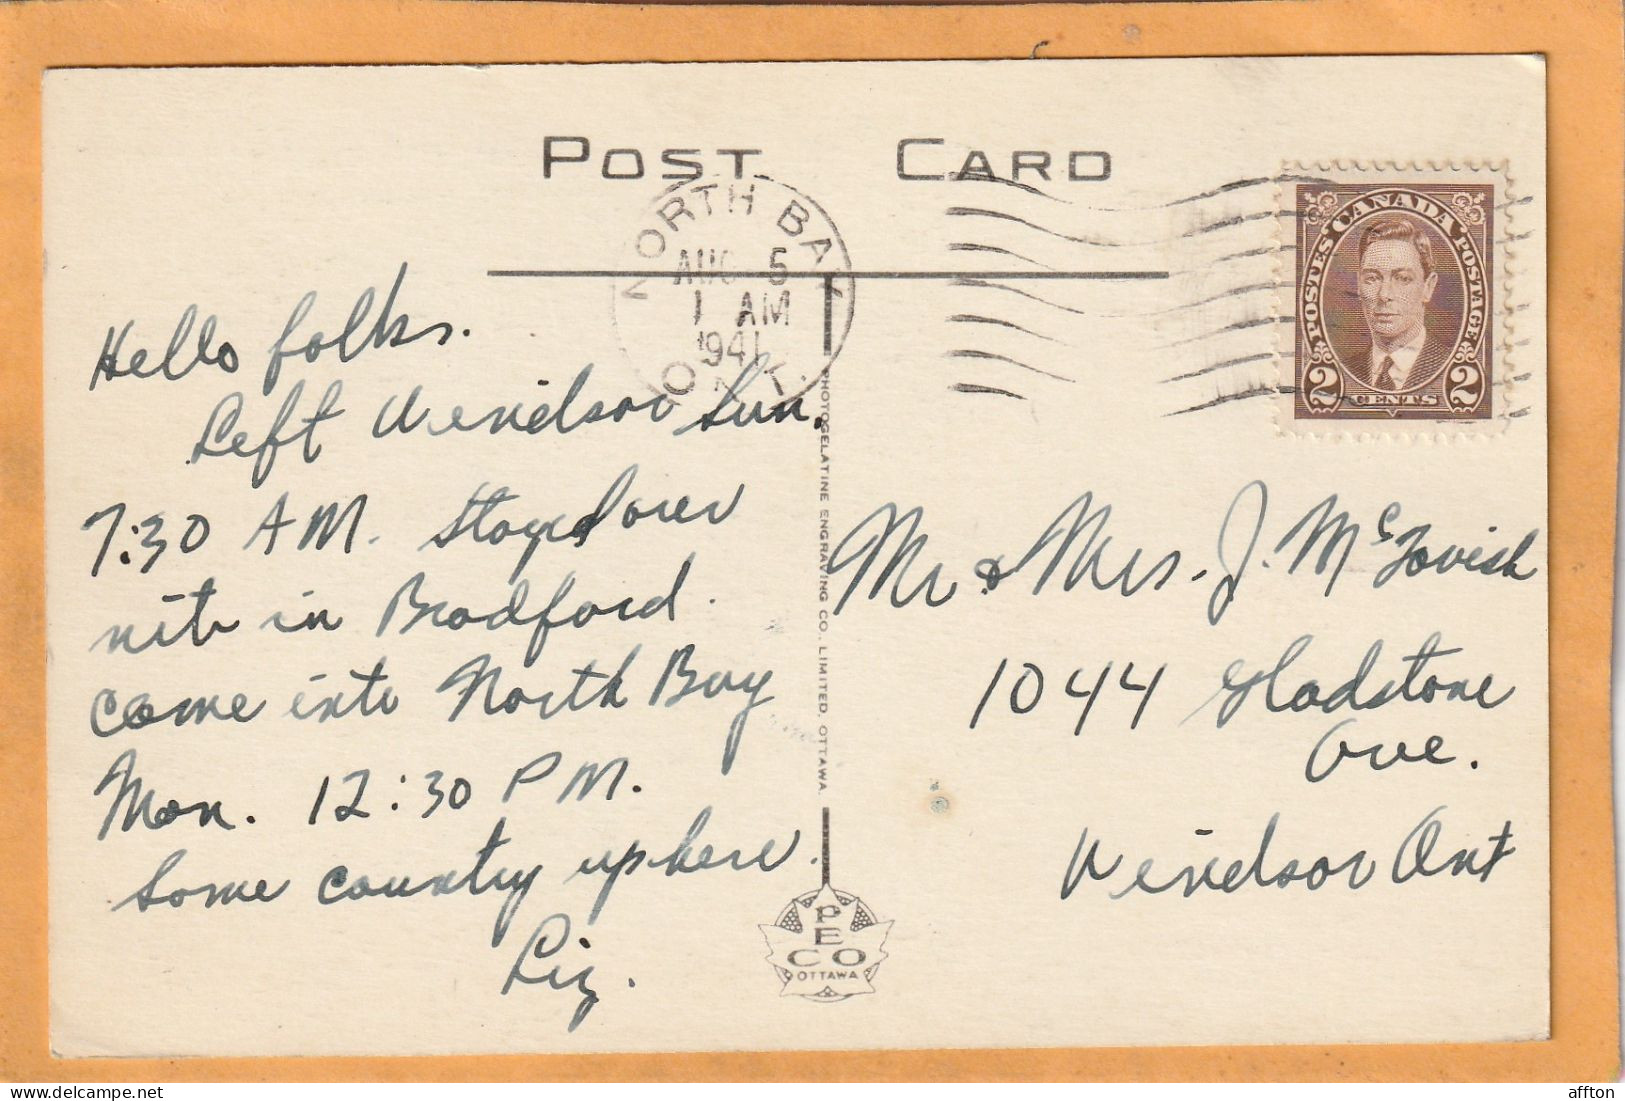 POST CARD
NORTH BAY
AUG 5
1 AM
1941
ONT.
CANADA
POSTES POSTAGE
2 CENTS 2
Hello folks.
Left Windsor Sun.
7:30 A.M. Stayed over
nite in Bradford.
Came into North Bay
Mon. 12:30 P.M.
Some country up here.
Liz.
PHOTOGELATINE ENGRAVING CO., LIMITED, OTTAWA.
PECO
OTTAWA
Mr & Mrs. J. McTavish
1044 Gladstone
Ave.
Windsor Ont
affton